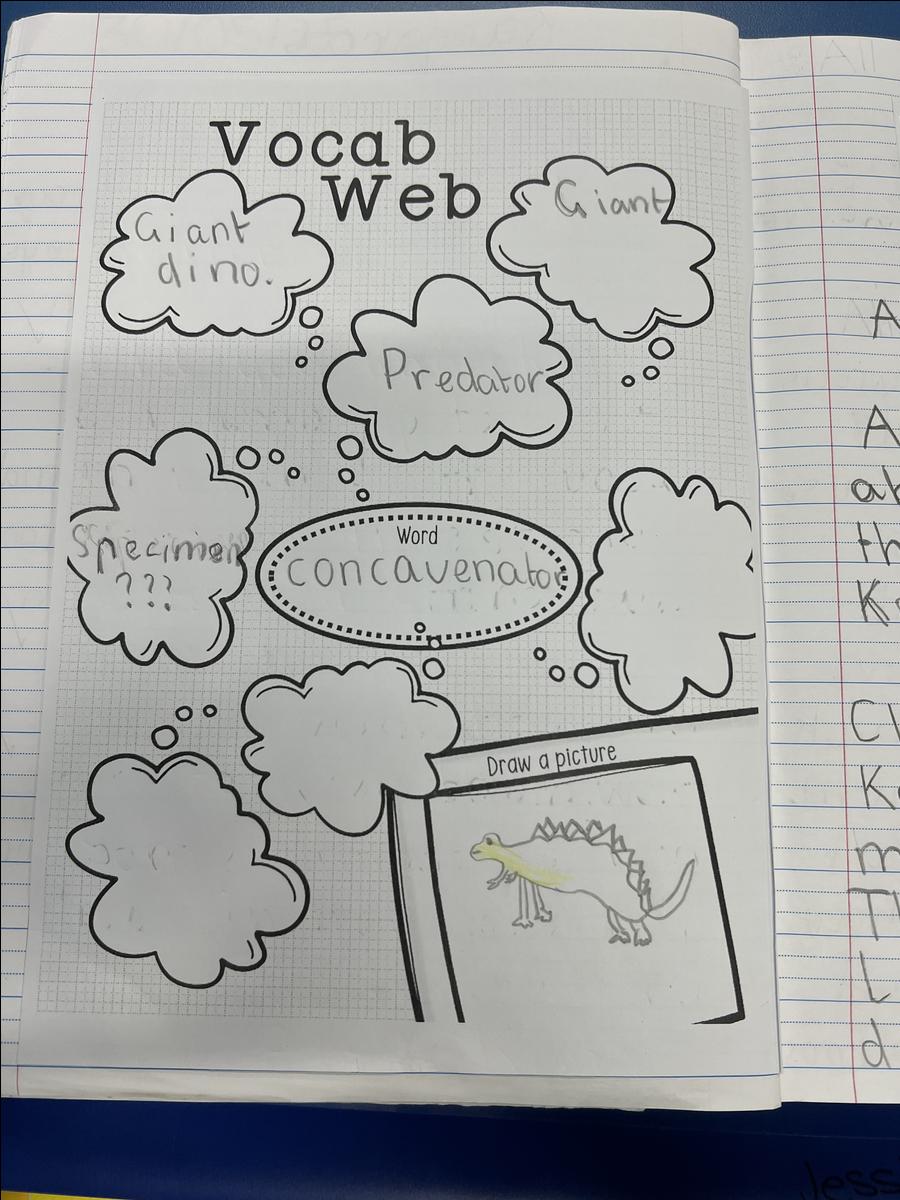 Vocab
Web
Giant
dino.
Giant
Predator
Specimen
???
Word
concavenator
Draw a picture
A
A
ab
th
K
m
L
d
less